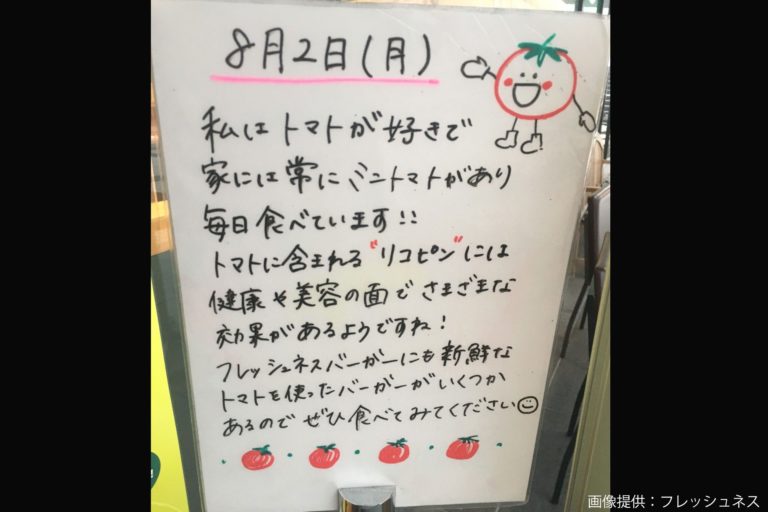 8月2日(月)
私はトマトが好きで
家には常にミニトマトがあり
毎日食べています!!
トマトに含まれる"リコピン"には
健康や美容の面でさまざまな
効果があるようですね!
フレッシュネスバーガーにも新鮮な
トマトを使ったバーガーがいくつか
あるのでぜひ食べてみてください
画像提供：フレッシュネス